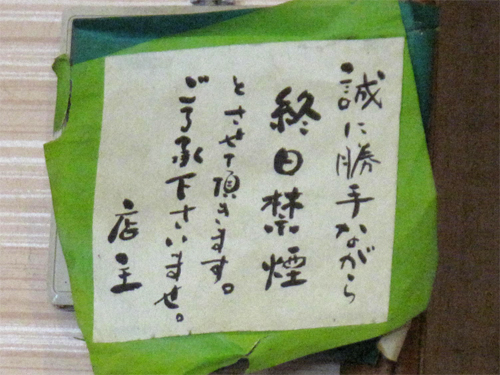 誠に勝手ながら
終日禁煙
とさせて頂きます。
ご了承下さいませ。
店主